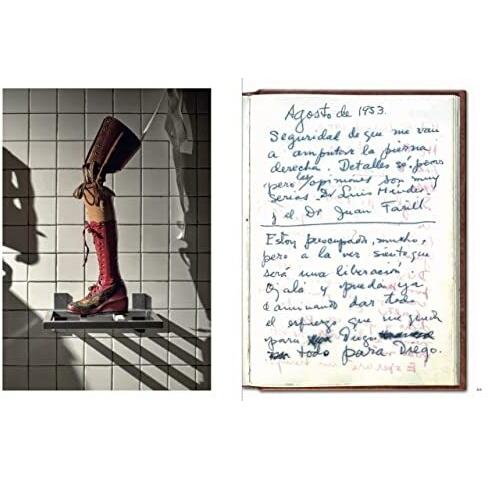 Agosto de 1953.
Seguridad de que me van
a amputar la pierna
derecha. Detalles sé pocos
pero las opiniones son muy
serias. Dr Luis Méndez,
y el Dr Juan Farill
Estoy preocupada, mucho,
pero a la vez siento que
será una liberación
Ojalá y pueda ya
caminando dar todo
el esfuerzo que me queda
para Diego
todo para Diego.